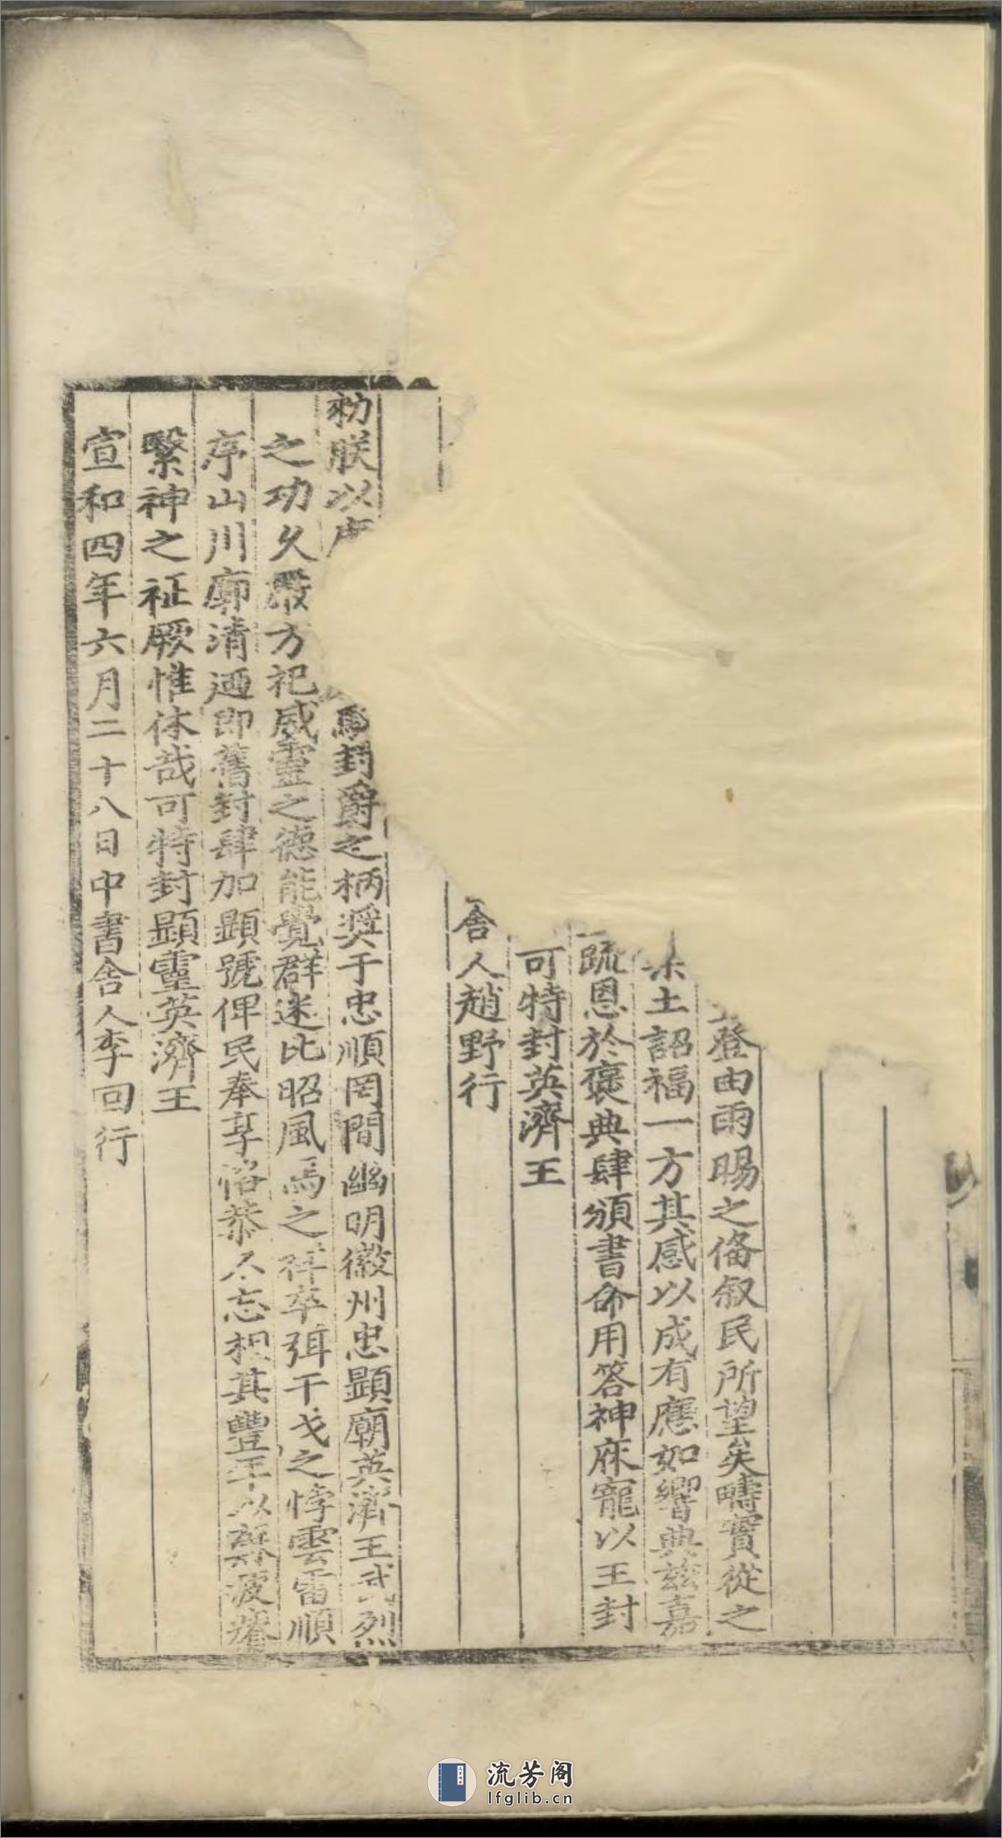 登由雨暘之俻叙民所望矣疇實從之
土詔福一方其感以成有應如響典兹嘉
疏恩於褒典肆頒書命用答神庥寵以王封
可特封英濟王
舍人趙野行
勑朕以 封爵之柄奬于忠順罔間幽明徽州忠顯廟英濟王武烈
之功久嚴方祀威靈之德能覺群迷比昭風馬之祥卒弭干戈之悖雲雷順
序山川廓清迺即舊封肆加顯號俾民奉享恪恭不忘相其豐年以蘇疲瘵
繄神之祉厥惟休哉可特封顯靈英濟王
宣和四年六月二十八日中書舍人李回行
流芳阁
lfglib.cn